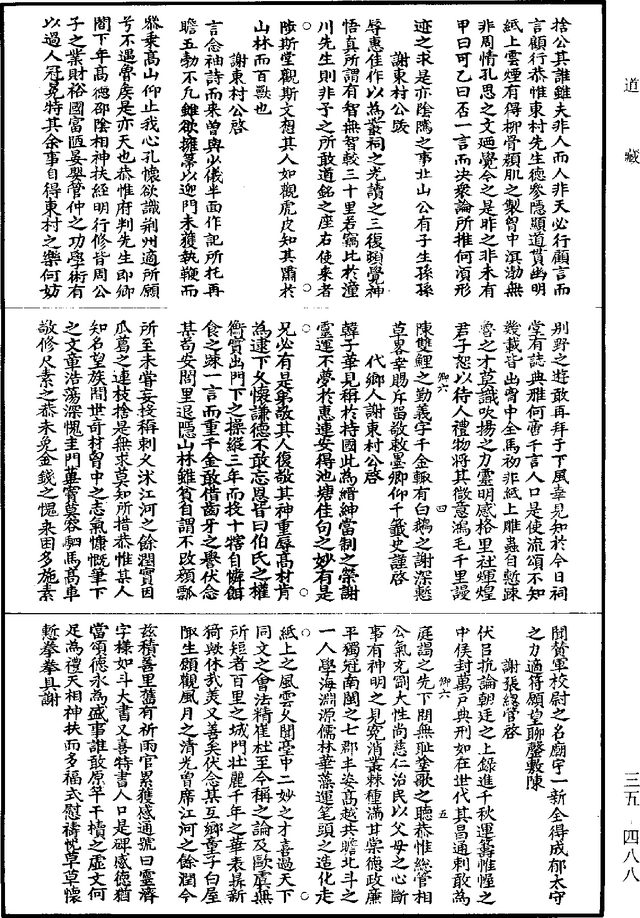 道藏
捨公其誰雖夫非人而人非天必行顧言而
言顧行恭惟東村先生德參隱顯道貫幽明
紙上雲煙有得柳骨顏肌之製曾中溟渤無
非周情孔思之文廼覺今之是昨之非未有
甲曰可乙曰否一言而決衆論所推何須形
迹之求是亦陰隲之事北山公有子生孫孫
謝東村公跋
辱惠佳作以為叢祠之光讀之三復頭覺神
悟真所謂有智無智較三十里若竊比於潼
川先生則非子之所敢道銘之座右使來者
陟斯堂觀斯文想其人如觀虎皮知其肅於
山林而百獸也
謝東村公啓
言念袖詩而來曾與必儀半面作記所托再
瞻五勑不凡雖欲擁篲以迎門未獲執鞭而
叅乗高山仰止我心孔懷欲識荆州適所願
兮不遇魯矦是亦天也恭惟府判先生即鄉
閭下年高德邵陰相神扶經明行修昔周公
子之業財裕國富陋晏嬰管仲之功學術有
以過人冠冕特其余事自得東村之樂何妨
别野之遊敢再拜于下風幸見知於今日祠
堂有誌典雅何啻千言人口是使流頌不知
幾載皆出胷中全馬初非紙上雕蟲自慙疎
魯之才莫識吹揚之力靈明感格里社煇煌
君子恕以待人禮物將其微意鴻毛千里謾
陳雙鯉之勤義字千金輙有白鵝之謝深慙
草畧幸賜斥留敬敕墨卿仰千籖史謹啓
代鄉人謝東村公啓
韓子華見稱於持國此為縉紳當制之榮謝
靈運不夢於惠連安得池塘佳句之妙有是
兄必有是弟敬其人復敬其神重辱高材肯
為逮下久懷謙德不敢忘恩皆曰伯氏之權
衡實出門下之操縱三年而投十犗自憐餌
食之踈一言而重千金敢借齒牙之譽伏念
某苟安閭里退隱山林雖貧自謂不改顏瓢
所至未嘗妄投稱刺乆沐江河之餘潤實因
瓜葛之連枝捨是無求莫知所措恭惟某人
知名望族間世奇材胷中之志氣慷慨筆下
之文章浩蕩深愧圭門蓽竇莫容駟馬高車
敬修尺素之恭未免金錢之愧来困多施素
閒贊軍校尉之名廟宇一新全得成郁太守
之力適符願望聊罄敷陳
謝張總管啓
伏㠯抗論朝廷之上録進千秋運籌帷幄之
中侯封萬戶典刑如在世代其昌通刺敢為
庭謁之先下問無耻堂歌之聽恭惟總管相
公氣充剛大性尚慈仁治民以父母之心斷
事有神明之見究消叢棘種滿甘棠德政廉
平獨冠南閩之七郡丰姿高越共瞻北斗之
一人學海淵源儒林華藻運筆頭之造化走
紙上之風雲乆聞臺中二妙之才喜過天下
同文之會法精崔杜至今稱之論及歐虞無
所短者百里之城門壯麗千年之華表掞新
猗歟休哉美又善矣伏念某互鄉童子白屋
陬生願觀風月之清光曾席江河之餘潤今
兹積善里舊有祈雨官累獲感通號曰靈濟
字樣如斗大書又喜特書人口是碑感德猶
當頌德永為盛事誰敢原竿千櫝之虚文何
足為禮天相神扶而多福式慰禱忱草草懷
慙拳拳具謝
御六
四
御六
五
三五-四八八